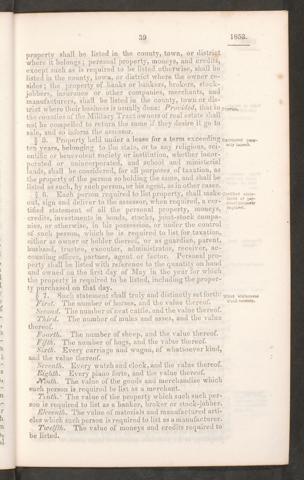 39
1853.
property shall be listed in the county, town, or district
where it belongs; personal property, moneys, and credits,
except such as is required to be listed otherwise, shall be
listed in the county, town, or district where the owner re-
sides; the property of banks or bankers, brokers, stock-
jobbers, insurance or other companies, merchants, and
manufacturers, shall be listed in the county, town or dis-
trict where their business is usually done: Provided, that in
the counties of the Military Tract owners of real estate shall
not be compelled to return the same if they desire it go to
sale, and so inform the assessor.
§ 5. Property held under a lease for a term exceeding
ten years, belonging to the state, or to any religious, sci-
entific or benevolent society or institution, whether incor-
porated or unincorporated, and school and ministerial
lands, shall be considered, for all purposes of taxation, as
the property of the person so holding the same, and shall be
listed as such, by such person, or his agent, as in other cases.
§ 6. Each person required to list property, shall make
out, sign and deliver to the assessor, when required, a cer-
tified statement of all the personal property, moneys,
credits, investments in bonds, stocks, joint-stock compa-
nies, or otherwise, in his possession, or under the control
of such person, which he is required to list for taxation,
either as owner or holder thereof, or as guardian, parent,
husband, trustee, executor, administrator, receiver, ac-
counting officer, partner, agent or factor. Personal pro-
perty shall be listed with reference to the quantity on hand
and owned on the first day of May in the year for which
the property is required to be listed, including the proper-
ty purchased on that day.
§ 7. Such statement shall truly and distinctly set forth:
First. The number of horses, and the value thereof.
Second. The number of neat cattle, and the value thereof.
Third. The number of mules and asses, and the value
thereof.
Fourth. The number of sheep, and the value thereof.
Fifth. The number of hogs, and the value thereof.
Sixth. Every carriage and wagon, of whatsoever kind,
and the value thereof.
Seventh. Every watch and clock, and the value thereof.
Eighth. Every piano forte, and the value thereof.
Ninth. The value of the goods and merchandise which
such person is required to list as a merchant.
Tenth. The value of the property which such such per-
son is required to list as a banker, broker or stock-jobber.
Eleventh. The value of materials and manufactured arti-
cles which such person is required to list as a manufacturer.
Twelfth. The value of moneys and credits required to
be listed.